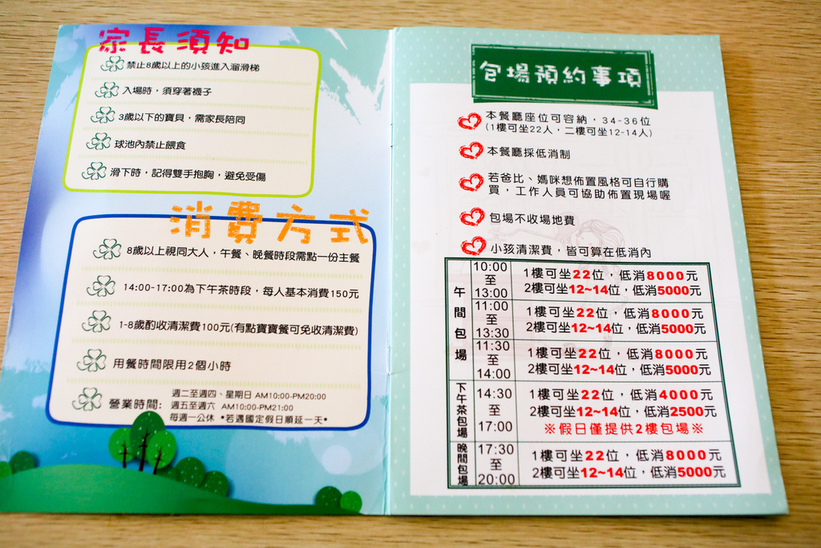 家長須知
禁止8歲以上的小孩進入溜滑梯
入場時，須穿著襪子
3歲以下的寶貝，需家長陪同
球池內禁止餵食
滑下時，記得雙手抱胸，避免受傷
消費方式
8歲以上視同大人，午餐、晚餐時段需點一份主餐
14:00-17:00為下午茶時段，每人基本消費150元
1-8歲酌收清潔費100元(有點寶寶餐可免收清潔費)
用餐時間限用2個小時
營業時間:
週二至週四、星期日 AM10:00-PM20:00
週五至週六 AM10:00-PM21:00
每週一公休 *若遇國定假日順延一天*
包場預約事項
本餐廳座位可容納，34-36位
(1樓可坐22人，二樓可坐12-14人)
本餐廳採低消制
若爸比、媽咪想佈置風格可自行購
買，工作人員可協助佈置現場喔
包場不收場地費
小孩清潔費，皆可算在低消內
午間包場
10:00至13:00
1樓可坐22位，低消8000元
2樓可坐12~14位，低消5000元
11:00至13:30
1樓可坐22位，低消8000元
2樓可坐12~14位，低消5000元
11:30至14:00
1樓可坐22位，低消8000元
2樓可坐12~14位，低消5000元
下午茶包場
14:30至17:00
1樓可坐22位，低消4000元
2樓可坐12~14位，低消2500元
※假日僅提供2樓包場※
晚間包場
17:30至20:00
1樓可坐22位，低消8000元
2樓可坐12~14位，低消5000元